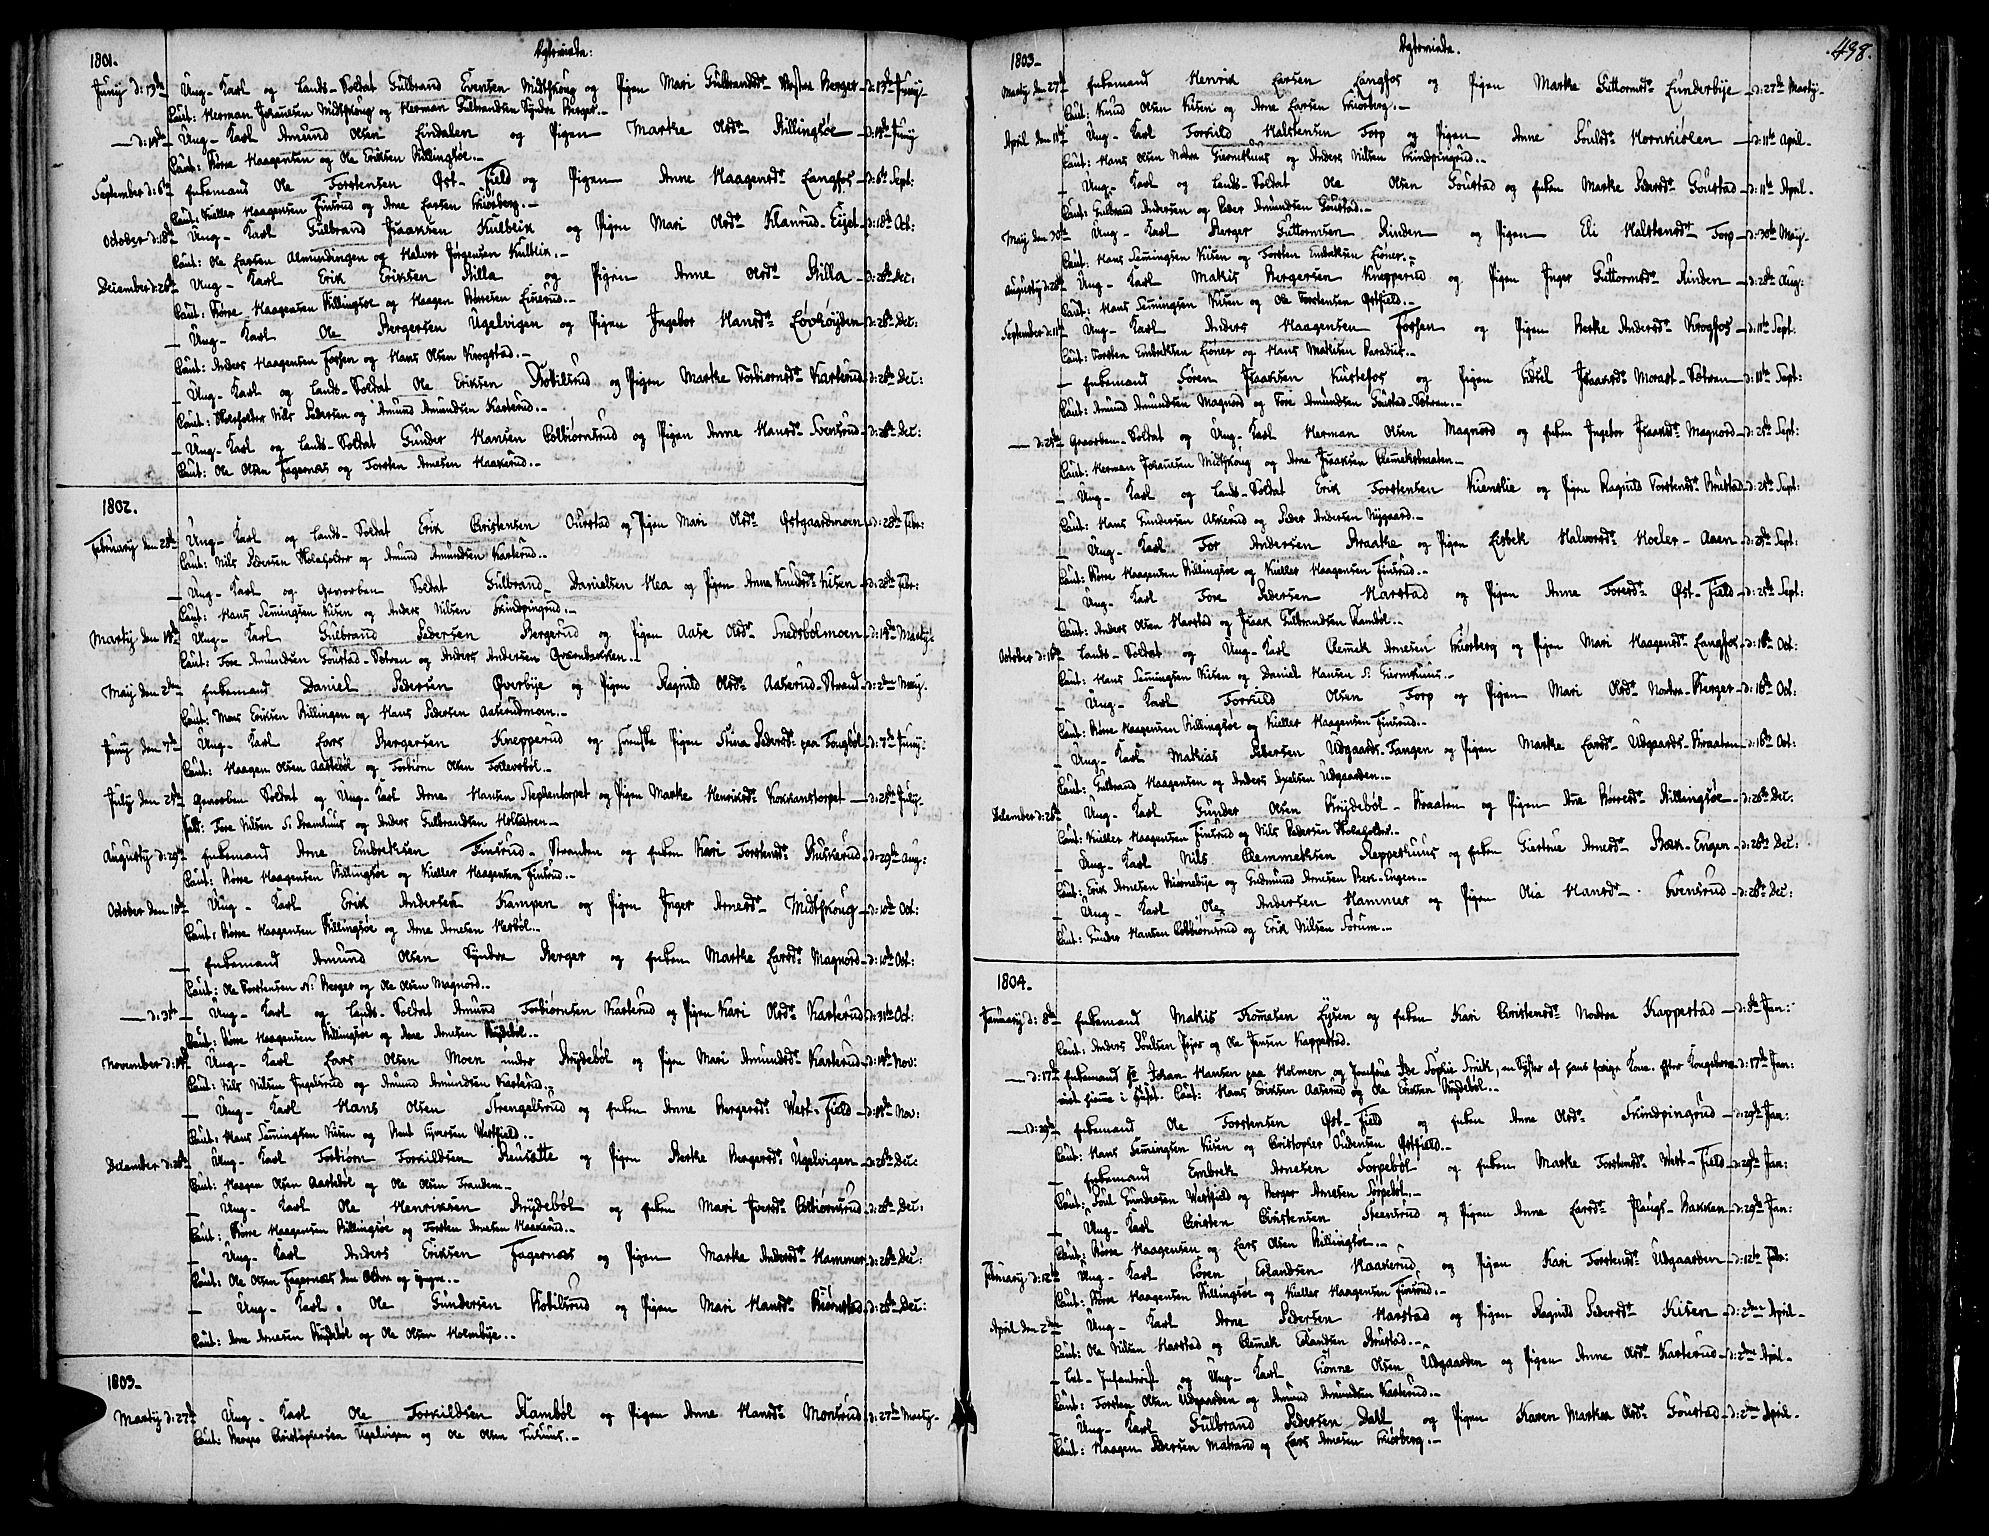 1801.
Juny d: 13de Ung-Karl og Lands-Soldat Gulbrand Evensen Midtskoug og Pigen Mari Gulbrandsdr Berger d: 13de Juny
Caut: Herman Johansen Midtskoug og Herman Gulbrandsen Syndre Berger.
d: 14de Ung-Karl Amund Olsen Lindalen og Pigen Marthe Olsdr Billingsøe d: 14de Juny
Caut: Børre Haagensen og Ole Eriksen Billingsøe.
September d: 6te Enkemand Ole Torstensen Øst-Field og Pigen Anne Haagensdr Langfos d: 6te Sept:
Caut: Kieller Haagensen Finsrud og Arne Larsen
October d: 18de Ung-Karl Gulbrand Isaaksen Kulblik og Pigen Mari Olsdr Klanrud-Eijet d: 18de Oct:
Caut: Ole Larsen Almundingen og Halvor Jørgensen Kulblik.
December d: 26de Ung-Karl Erik Eriksen Skilla og Pigen Anne Olsdr Skilla d: 26de Dec:
Caut: Børre Haagensen Billingsøe og Haagen
Ung-Karl Ole Bergersen Ugelvigen og Pigen Ingebor Hansdr Løvhøyden d: 26de Dec:
Caut: Anders Haagensen Forsen og Hans Olsen Krogstad.
Ung-Karl og Lands-Soldat Ole Eriksen og Pigen Marthe Torbiørnsdr Kasterud d: 26de Dec:
Caut: Nils Pedersen og Amund Amundsen Kasterud.
Ung-Karl og Lands-Soldat Gunder Hansen Colbiørnsrud og Pigen Anne Hansdr Svensrud d: 26de Dec:
Caut: Ole Olsen Fagernæs og Torsten Arnesen Haakerud.
1802.
February den 28de Ung-Karl og Lands-Soldat Erik Christensen Ourstad og Pigen Mari Olsdr Østgaardmoen d: 28de Febr:
Caut: Nils Pedersen og Amund Amundsen Kasterud.
Ung-Karl og Gevorben Soldat Gulbrand Danielsen Mea og Pigen Anne Knudsdr Kisen d: 28de Febr:
Caut: Hans Semingsen Kisen og Anders Nilsen Skindpingrud.
Marty den 14de Ung-Karl Gulbrand Pedersen Bergerud og Pigen Aase Olsdr Snedsbølmoen d: 14de Marty
Caut: Tore Amundsen Goustad-Sætren og Anders Andersen Qvernbakken.
Maij den 2den Enkemand Daniel Pedersen Øverbye og Pigen Ragnild Olsdr Aaserud-Strand d: 2den Maij.
Caut: Mons Eriksen Billingen og Hans Pedersen Aaserudmoen.
Juny den 7de Ung-Karl Lars Bergersen Knepperud og Svenske Pigen Stina Pedersdr paa Tougbøl d: 7de Juny
Caut: Haagen Olsen Aasebøl og Torbiørn Olsen
July den 25de Gevorben Soldat og Ung-Karl Arne Hansen Stephentorpet og Pigen Marthe Henriksdr Kokkanstorpet d: 25de July
Caut: Tore Nilsen S: Bramhuus og Anders Gulbrandsen Holtetren.
Augusty d: 29de Enkemand Arne Embreksen Finsrud-Stranden og Enken Kari Torstensdr Buskerud d: 29de Aug:
Caut: Børre Haagensen Billingsøe og Kieller Haagensen Finsrud.
October den 10de Ung-Karl Erik Andersen Kampen og Pigen Inger Arnesdr Midtskoug d: 10de Oct:
Caut: Børre Haagensen Billingsøe og Arne Arnesen Hesbøl.
Enkemand Amund Olsen Syndre Berger og Enken Marthe Larsdr Magnord d: 10de Oct:
Caut: Ole Torstensen N: Berger og Ole Olsen Magnord.
d: 31te Ung-Karl og Lands-Soldat Amund Torbiørnsen Kasterud og Pigen Kari Olsdr Kasterud d: 31te Oct:
Caut: Børre Haagensen Billingsøe og Arne Arnesen Brydebøl.
November d: 14de Ung-Karl Lars Olsen Moen under Brydebøl og Pigen Mari Amundsdr Kasterud d: 14de Nov:
Caut: Nils Nilsen Ingelsrud og Amund Amundsen Kasterud.
Ung-Karl Hans Olsen Strengelsrud og Enken Anne Bergersdr West-Field d: 14de Nov:
Caut: Hans Semingsen Kisen og Bent Gjversen Westfield.
December d: 26de Ung-Karl Torbiørn Torkildsen og Pigen Berthe Bergersdr Ugelvigen d: 26de Dec:
Caut: Haagen Olsen Aasebøl og Ole Olsen Trandem.
Ung-Karl Ole Henriksen Brydebøl og Enken Mari Iversdr Colbiørnsrud d: 26de Dec:
Caut: Børre Haagensen Billingsøe og Torsten Arnesen Haakerud.
Ung-Karl Anders Eriksen Fagernæs og Pigen Marthe Andersdr Hammer d: 26de Dec:
Caut: Ole Olsen Fagernæs den Eldre og yngre.
Ung-Karl Ole Gundersen og Pigen Mari Hansdr Biørnstad d: 26de Dec:
Caut: Arne Arnesen Brydebøl og Ole Olsen Holmbye.
1803.
Marty d: 27de Ung-Karl Ole Torkildsen Rambøl og Pigen Anne Hansdr Monsrud d: 27de Marty
Caut: Berger Christophersen Ugelvigen og Ole Olsen
498.
1803.
Marty den 27de Enkemand Henrik Larsen Langfos og Pigen Marthe Guttormsdr Lunderbye d: 27de Marty
Caut: Knud Olsen Kisen og Arne Larsen
April den 11te Ung-Karl Torkild Halstensen Torp og Pigen Anne Poulsdr Hornkiølen d: 11te April
Caut: Hans Olsen Nodre Giermshuus og Anders Nilsen Skindpingrud.
Ung-Karl og Lands-Soldat Ole Olsen Goustad og Enken Marthe Pedersdr Goustad d: 11te April
Caut: Gulbrand Andersen og Peder Amundsen Goustad.
Maij den 30te Ung-Karl Berger Guttormsen Rinden og Pigen Eli Halstensdr Torp d: 30te Maij
Caut: Hans Semingsen Kisen og Torsten Embreksen Liøner.
Augusty d: 28de Ung-Karl Mathis Bergersen Knepperud og Pigen Inger Guttormsdr Rinden d: 28de Aug:
Caut: Hans Semingsen Kisen og Ole Torstensen Østfield.
September d: 11te Ung-Karl Anders Haagensen Forsen og Pigen Berthe Andersdr Krogfos d: 11te Sept:
Caut: Torsten Embreksen Liøner og Hans Mathisen Paradiis.
Enkemand Søren Isaaksen Kustefos og Pigen Isaaksdr Morast-Sætren d: 11te Sept:
Caut: Amund Amundsen Magnord og Tore Amundsen Goustad-Sætren.
d: 25de Gevorben-Soldat og Ung-Karl Herman Olsen Magnord og Enken Ingebor Isaaksdr Magnord d: 25de Sept:
Caut: Herman Johansen Midtskoug og Arne Isaaksen Clemetsbraaten
Ung-Karl og Lands-Soldat Erik Torstensen Kienslie og Pigen Ragnild Torstensdr Brustad d: 25de Sept:
Caut: Hans Gundersen Aaserud og Peder Andersen Nygaard.
Ung-Karl Tor Andersen Braathe og Pigen Lisbek Halvorsdr Hoeler-Aasen d: 25de Sept:
Caut: Børre Haagensen Billingsøe og Kieller Haagensen Finsrud.
Ung-Karl Tore Pedersen Harstad og Pigen Anne Toresdr Øst-Field d: 25de Sept:
Caut: Anders Olsen Harstad og Isaak Gulbrandsen Rambøl.
October d: 16de Lands-Soldat og Ung-Karl Clemet Arnesen og Pigen Mari Haagensdr Langfos d: 16de Oct:
Caut: Hans Semingsen Kisen og Daniel Hansen S: Giermshuus.
Ung-Karl Torkild Olsen Torp og Pigen Mari Olsdr Nordre-Berger d: 16de Oct:
Caut: Børre Haagensen Billingsøe og Kieller Haagensen Finsrud.
Ung-Karl Mathias Pedersen Udgaards-Tangen og Pigen Marthe Larsdr Udgaards-Braaten d: 16de Oct:
Caut: Gulbrand Haagensen og Anders Axelsen Udgaarden.
December d: 26de Ung-Karl Gunder Olsen Brydebøl-Braaten og Pigen Ane Børresdr Billingsøe d: 26de Dec:
Caut: Kieller Haagensen Finsrud og Nils Pedersen
Ung-Karl Nils Clemmetsen Reppeshuus og Enken Giertrue Arnesdr Bæk-Engen d: 26de Dec:
Caut: Erik Arnesen Biørnebye og Gudmund Arnesen Bæk-Engen.
Ung-Karl Ole Andersen Hammer og Pigen Olia Hansdr Svensrud d: 26de Dec:
Caut: Gunder Hansen Colbiørnsrud og Erik Nilsen Sørum.
1804.
January d: 8de Enkemand Mathis Tomesen Lysen og Enken Kari Christensdr Nordre Kappestad d: 8de Jan:
Caut: Anders Poulsen og Ole Jensen Kappestad.
d: 17de Enkemand Hr Johan Hansen paa Holmen og Jomfrue Sophie Smith, en Syster af hans forige Kone, efter Kongebrev d: 17de Jan:
viet hiemme i Huset. Caut: Hans Eriksen Aaserud og Ole Eriksen Brydebøl.
d: 29de Enkemand Ole Torstensen Øst-Field og Enken Anne Olsdr Skindpingrud d: 29de Jan:
Caut: Hans Semingsen Kisen og Christopher Østfield.
Enkemand Embrek Arnesen Torpebøl og Enken Marthe Torstensdr West-Field d: 29de Jan:
Caut: Poul Gundersen Westfield og Berger Arnesen Torpebøl.
Ung-Karl Christen Christensen og Pigen Anne Larsdr Bakken d: 29de Jan:
Caut: Børre Haagensen og Lars Olsen Billingsøe.
February d: 12te Ung-Karl Søren Erlandsen Haakerud og Pigen Kari Torstensdr Udgaarden d: 12te Febr:
Caut: Børre Haagensen Billingsøe og Kieller Haagensen Finsrud.
April den 2den Ung-Karl Arne Pedersen Harstad og Pigen Ragnild Pedersdr Kisen d: 2den April
Caut: Ole Nilsen Harstad og Clemet Erlandsen Brustad.
Let-Infanterist og Ung-Karl Tiønne Olsen Udgaarden og Pigen Anne Olsdr Kasterud d: 2den April
Caut: Torsten Olsen Udgaarden og Amund Amundsen Kasterud.
Ung-Karl Gulbrand Pedersen Dahl og Pigen Karen Marthea Olsdr Goustad d: 2den April
Caut: Haagen Pedersen Matrand og Lars Arnesen